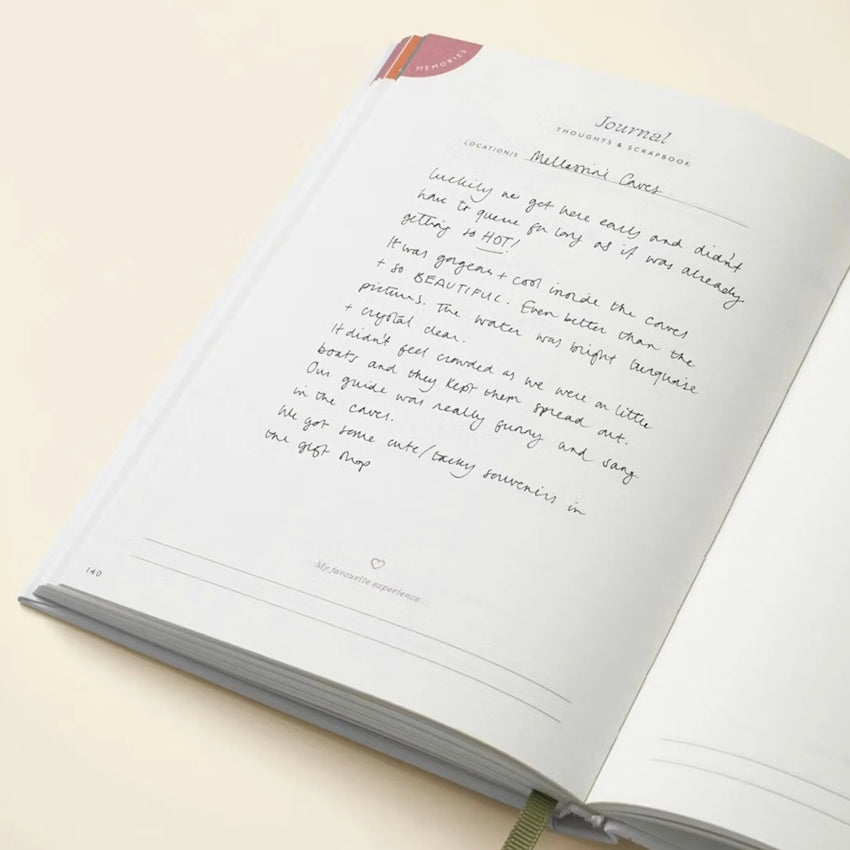 MEMORIES
Journal
THOUGHTS & SCRAPBOOK
LOCATION/S Mellissani Caves
luckily we got here early and didn't
have to queue for long as it was already
getting so HOT!
It was gorgeous + cool inside the caves
+ so BEAUTIFUL. Even better than the
pictures. The water was bright turquoise
+ crystal clear.
It didn't feel crowded as we were on little
boats and they kept them spread out.
Our guide was really funny and sang
in the caves.
We got some cute/tacky souvenirs in
the gift shop
My favourite experience
140